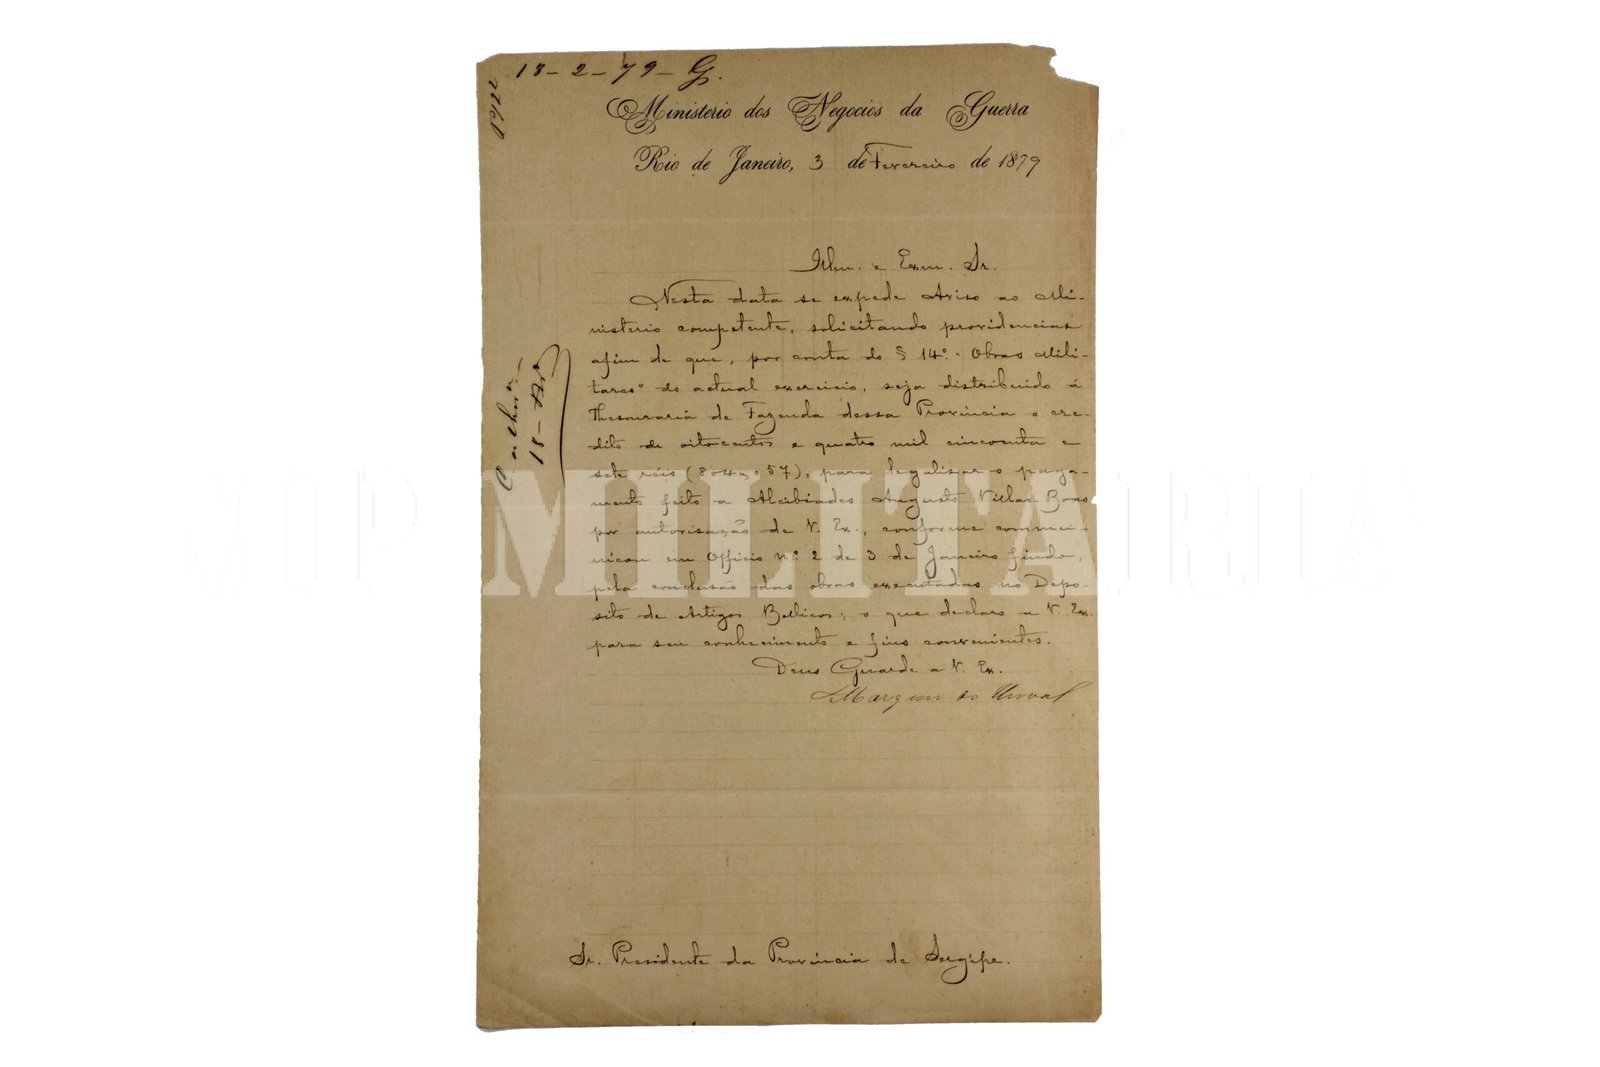 13-2-79-G.
Ministerio dos Negocios da Guerra
Rio de Janeiro, 3 de Fevereiro de 1879
Illm. e Exm. Sr.
Nesta data se expede Aviso ao Mi-
nisterio competente, solicitando providencias
afim de que, por conta do § 14º. "Obras Mili-
tares" do actual exercicio, seja distribuido á
Thesouraria de Fazenda dessa Provincia o cre-
dito de oitocentos e quatro mil cincoenta e
sete réis (804$057), para legalisar o paga-
mento feito a Alcibiades Augusto Villas Boas
por autorisação de V. Ex., conforme commu-
nicou em Officio nº 2 de 3 de Janeiro findo,
pela conclusão das obras executadas no Depo-
sito de Artigos Bellicos; o que declaro a V. Ex.
para seu conhecimento e fins convenientes.
Deus Guarde a V. Ex.
Marquez do Herval
Sr. Presidente da Provincia de Sergipe.
MILITARIA